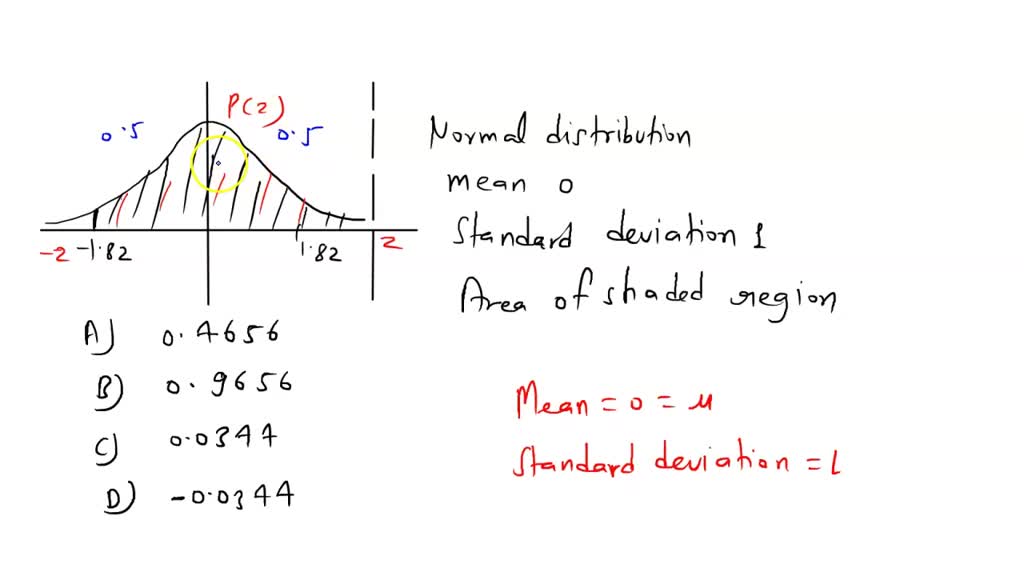 P(z)
0.5 0.5
-2 -1.82 1.82 2
A) 0.4656
B) 0.9656
C) 0.0344
D) -0.0344
Normal distribution
mean 0
Standard deviation 1
Area of shaded region
Mean = 0 = μ
Standard deviation = 1